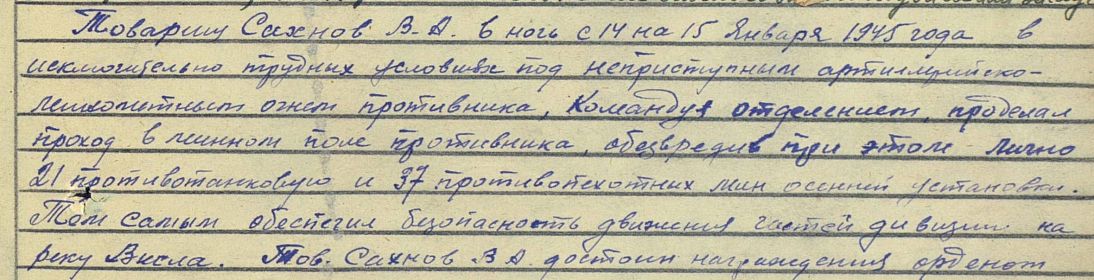 Товарищ Сахнов В.А. в ночь с 14 на 15 Января 1945 года в
исключительно трудных условиях под неприступным артиллерийско-
пулеметным огнем противника, командуя отделением, проделал
проход в минном поле противника, обезвредив при этом лично
21 противотанковую и 37 противопехотных мин осенней установки.
Тем самым обеспечил безопасность движения частей дивизии на
реку Висла. Тов. Сахнов В.А. достоин награждения орденом